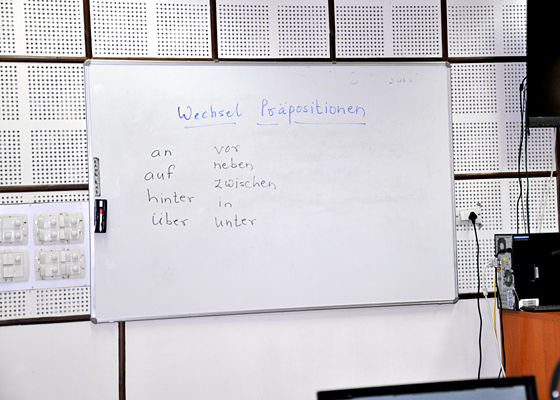 Wechsel Präpositionen
an vor
auf neben
zwischen
hinter in
über unter